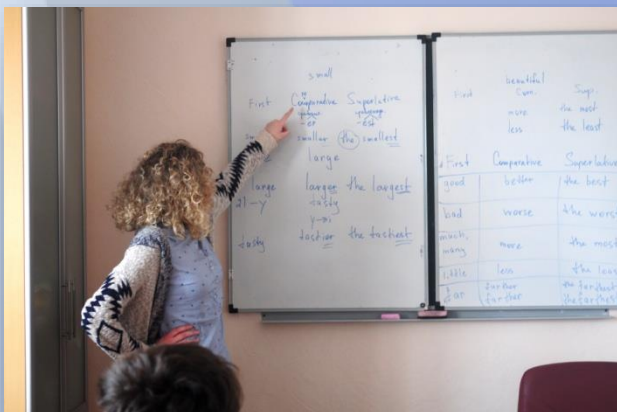 small
First Comparative Superlative
-er -est
smaller the smallest
large
large larger the largest
2) -y tasty
y→i
tasty tastier the tastiest
beautiful
First Com. Sup.
more the most
less the least
First Comparative Superlative
good better the best
bad worse the worst
much, many more the most
little less the least
far farther the farthest
further the furthest